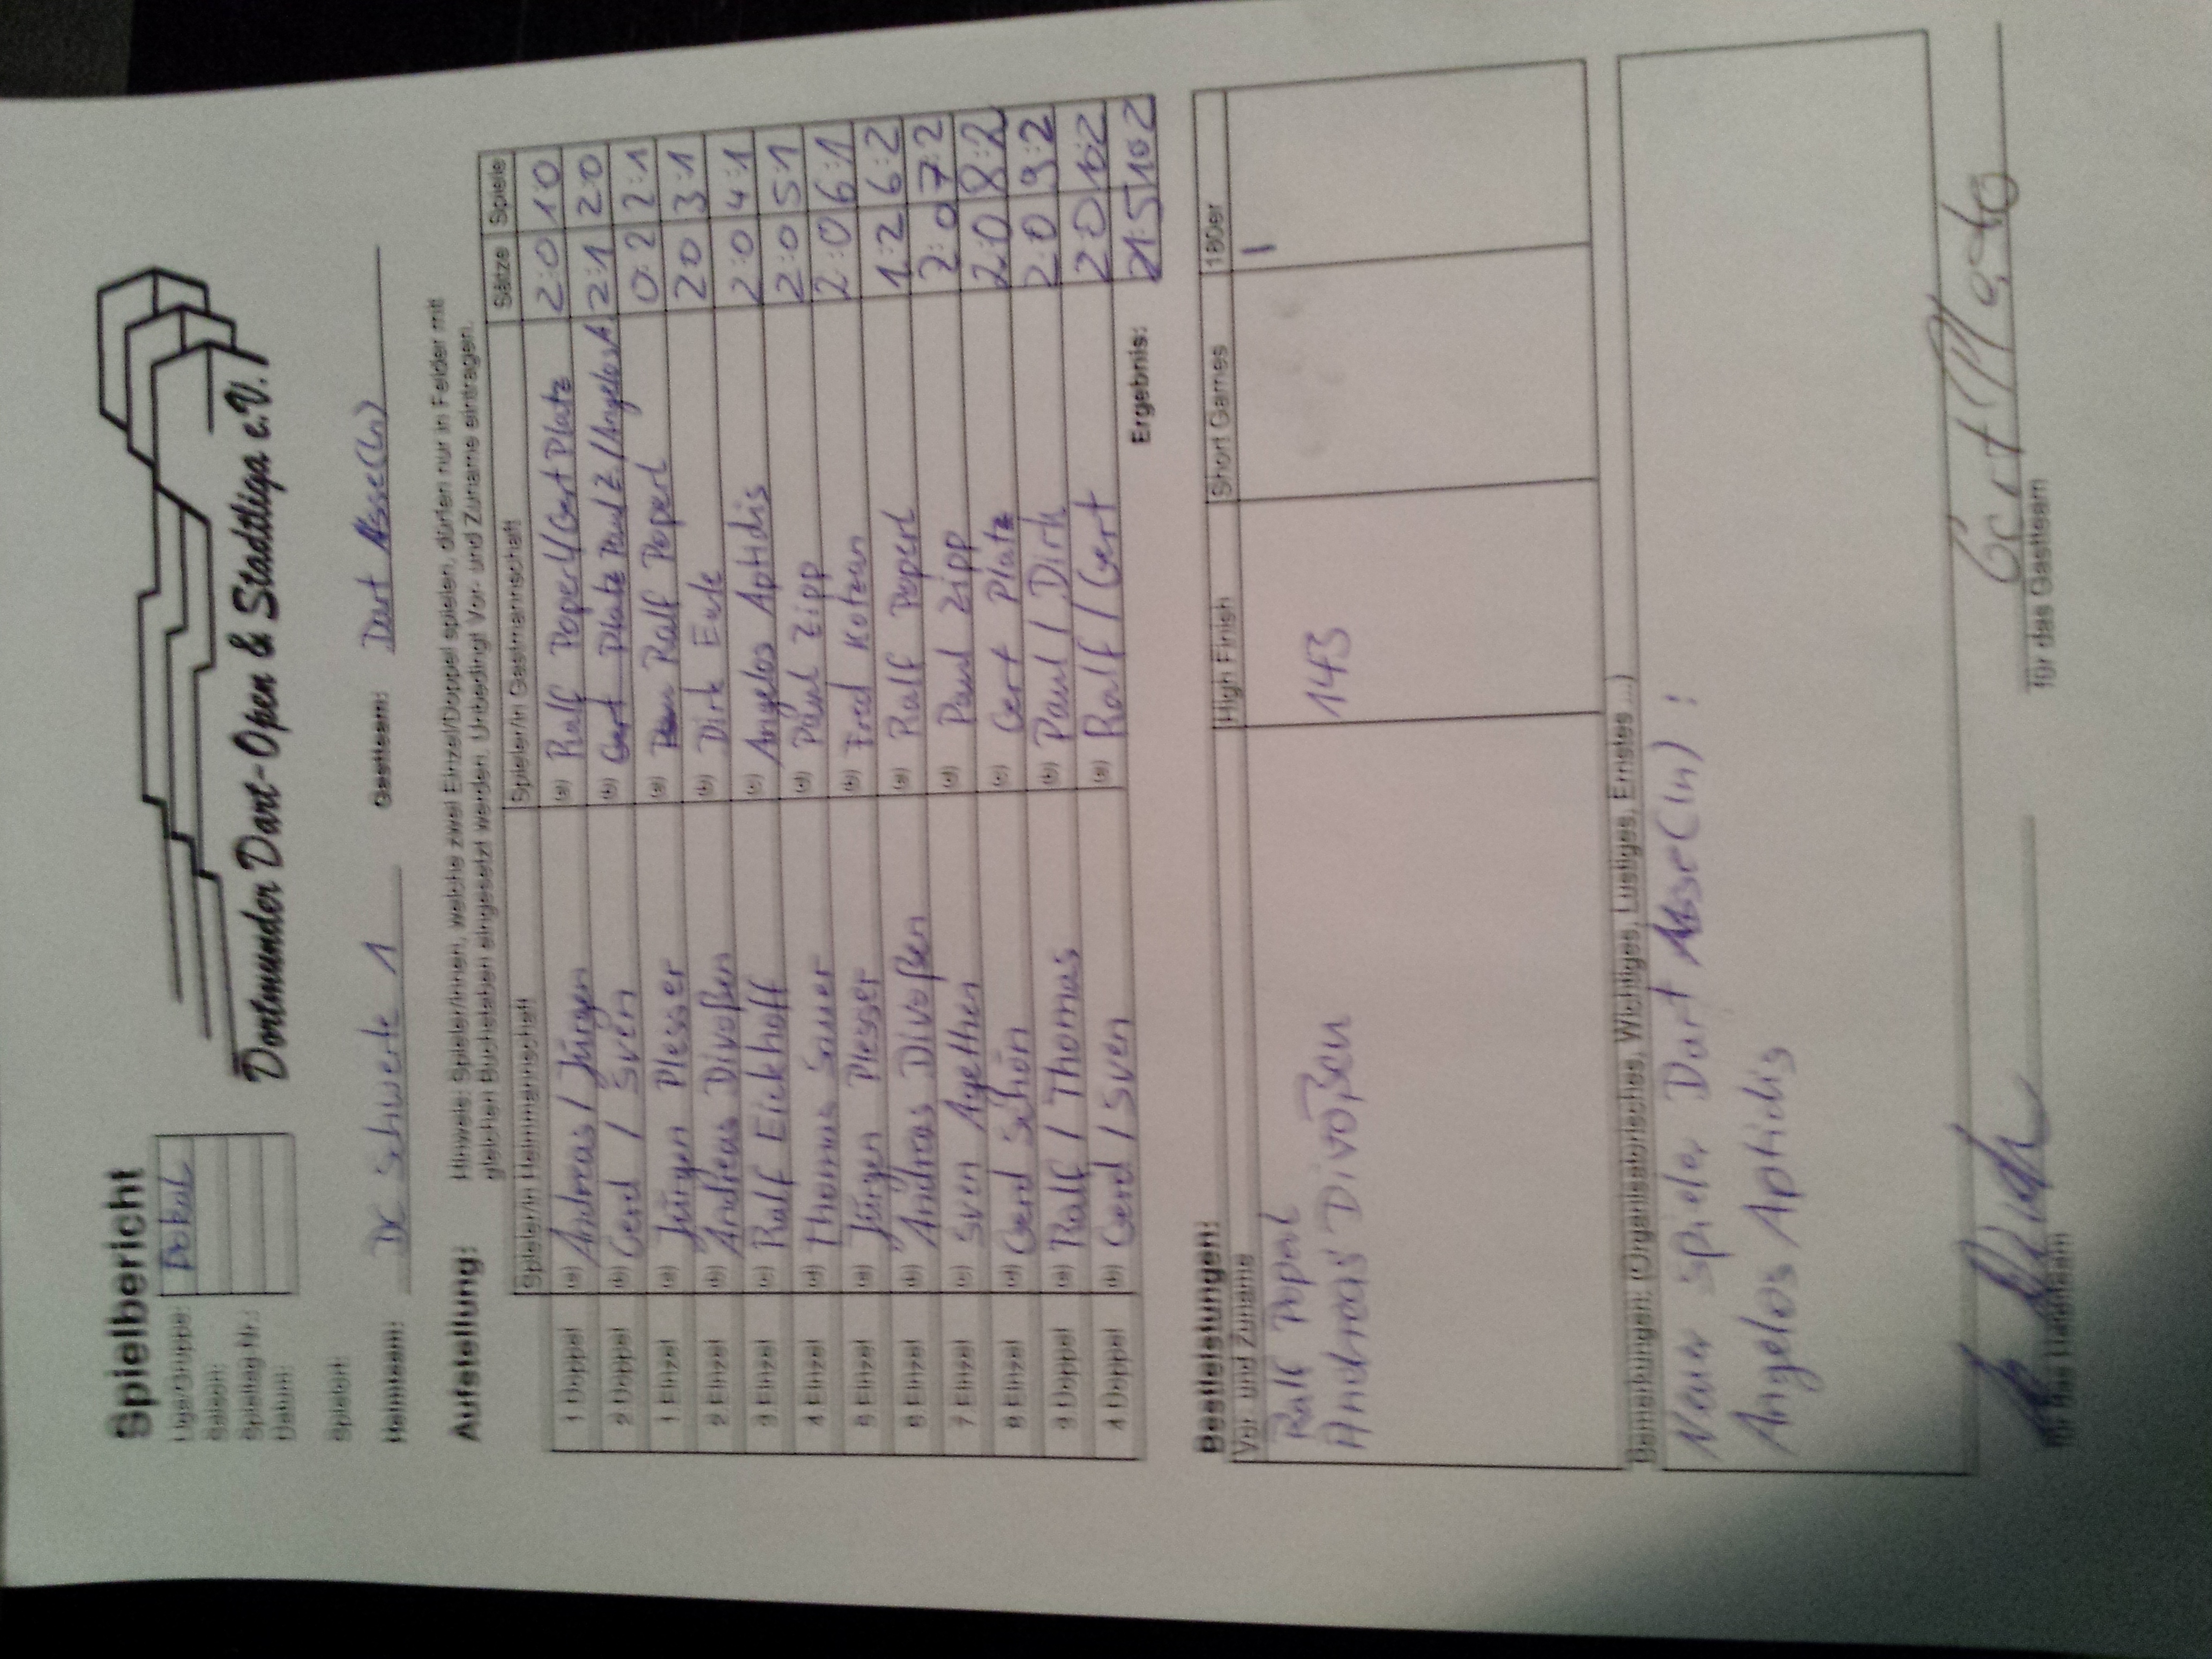 Spielbericht
Dortmunder Dart-Open & Stadtliga e.V.
Liga/Gruppe: Pokal
Saison:
Spieltag-Nr.:
Datum:
Spielort:
Heimteam: DC Schwerte 1 Gastteam: Dart Asse(ln)
Aufstellung: Hinweis: Spieler/innen, welche zwei Einzel/Doppel spielen, dürfen nur in Felder mit
gleichen Buchstaben eingesetzt werden. Unbedingt Vor- und Zuname eintragen.
Spieler/in Heimmannschaft Spieler/in Gastmannschaft Sätze Spiele
1 Doppel (a) Andreas / Jürgen (a) Ralf Poperl/Gert Platz 2:0 1:0
2 Doppel (b) Gerd / Sven (b) Gert Platz Paul Z./Angelos A. 2:1 2:0
1 Einzel (a) Jürgen Plesser (a) Ralf Poperl 0:2 2:1
2 Einzel (b) Andreas Divoßen (b) Dirk Eule 2:0 3:1
3 Einzel (c) Ralf Eickhoff (c) Angelos Aptidis 2:0 4:1
4 Einzel (d) Thomas Sauer (d) Paul Zipp 2:0 5:1
5 Einzel (a) Jürgen Plesser (b) Fred Kotzan 2:0 6:1
6 Einzel (b) Andreas Divoßen (a) Ralf Poperl 1:2 6:2
7 Einzel (c) Sven Agethen (d) Paul Zipp 2:0 7:2
8 Einzel (d) Gerd Schön (c) Gert Platz 2:0 8:2
3 Doppel (a) Ralf / Thomas (b) Paul / Dirk 2:0 9:2
4 Doppel (b) Gerd / Sven (a) Ralf / Gert 2:0 10:2
Ergebnis: 21:5 10:2
Bestleistungen:
Vor- und Zuname High Finish Short Games 180er
Ralf Poperl I
Andreas Divoßen 143
Bemerkungen: (Organisatorisches, Wichtiges, Lustiges, Ernstes ...)
Neuer Spieler Dart Asse(ln) :
Angelos Aptidis
Gert Platz
für das Heimteam für das Gastteam